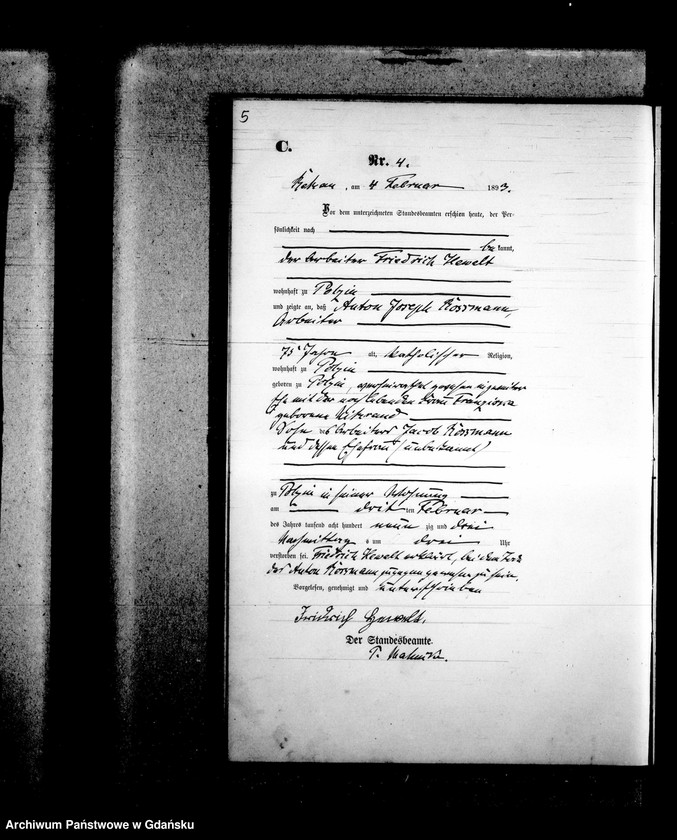 5
C.
Nr. 4.
am 4 Februar 1893.
Vor dem unterzeichneten Standesbeamten erschien heute, der Per-
sönlichkeit nach
be kannt,
der Arbeiter Friedrich Hewelt
wohnhaft zu Polzin
und zeigte an, daß Anton Joseph Kössmann,
Arbeiter
75 Jahre alt, katholischer Religion,
wohnhaft zu Polzin
geboren zu Polzin, verheirathet gewesen in zweiter
Ehe mit der noch lebenden Frau Franziska
geborene
Sohn des Arbeiters Jacob Kössmann
und dessen Ehefrau (unbekannt)
zu Polzin in seiner Wohnung
am drit ten Februar
des Jahres tausend acht hundert neun zig und drei
Nachmittag s um drei Uhr
verstorben sei. Friedrich Hewelt erklärt, bei dem Tode
des Anton Kössmann zugegen gewesen zu sein.
Vorgelesen, genehmigt und unterschrieben
Friedrich Hewelt.
Der Standesbeamte.
Archiwum Państwowe w Gdańsku